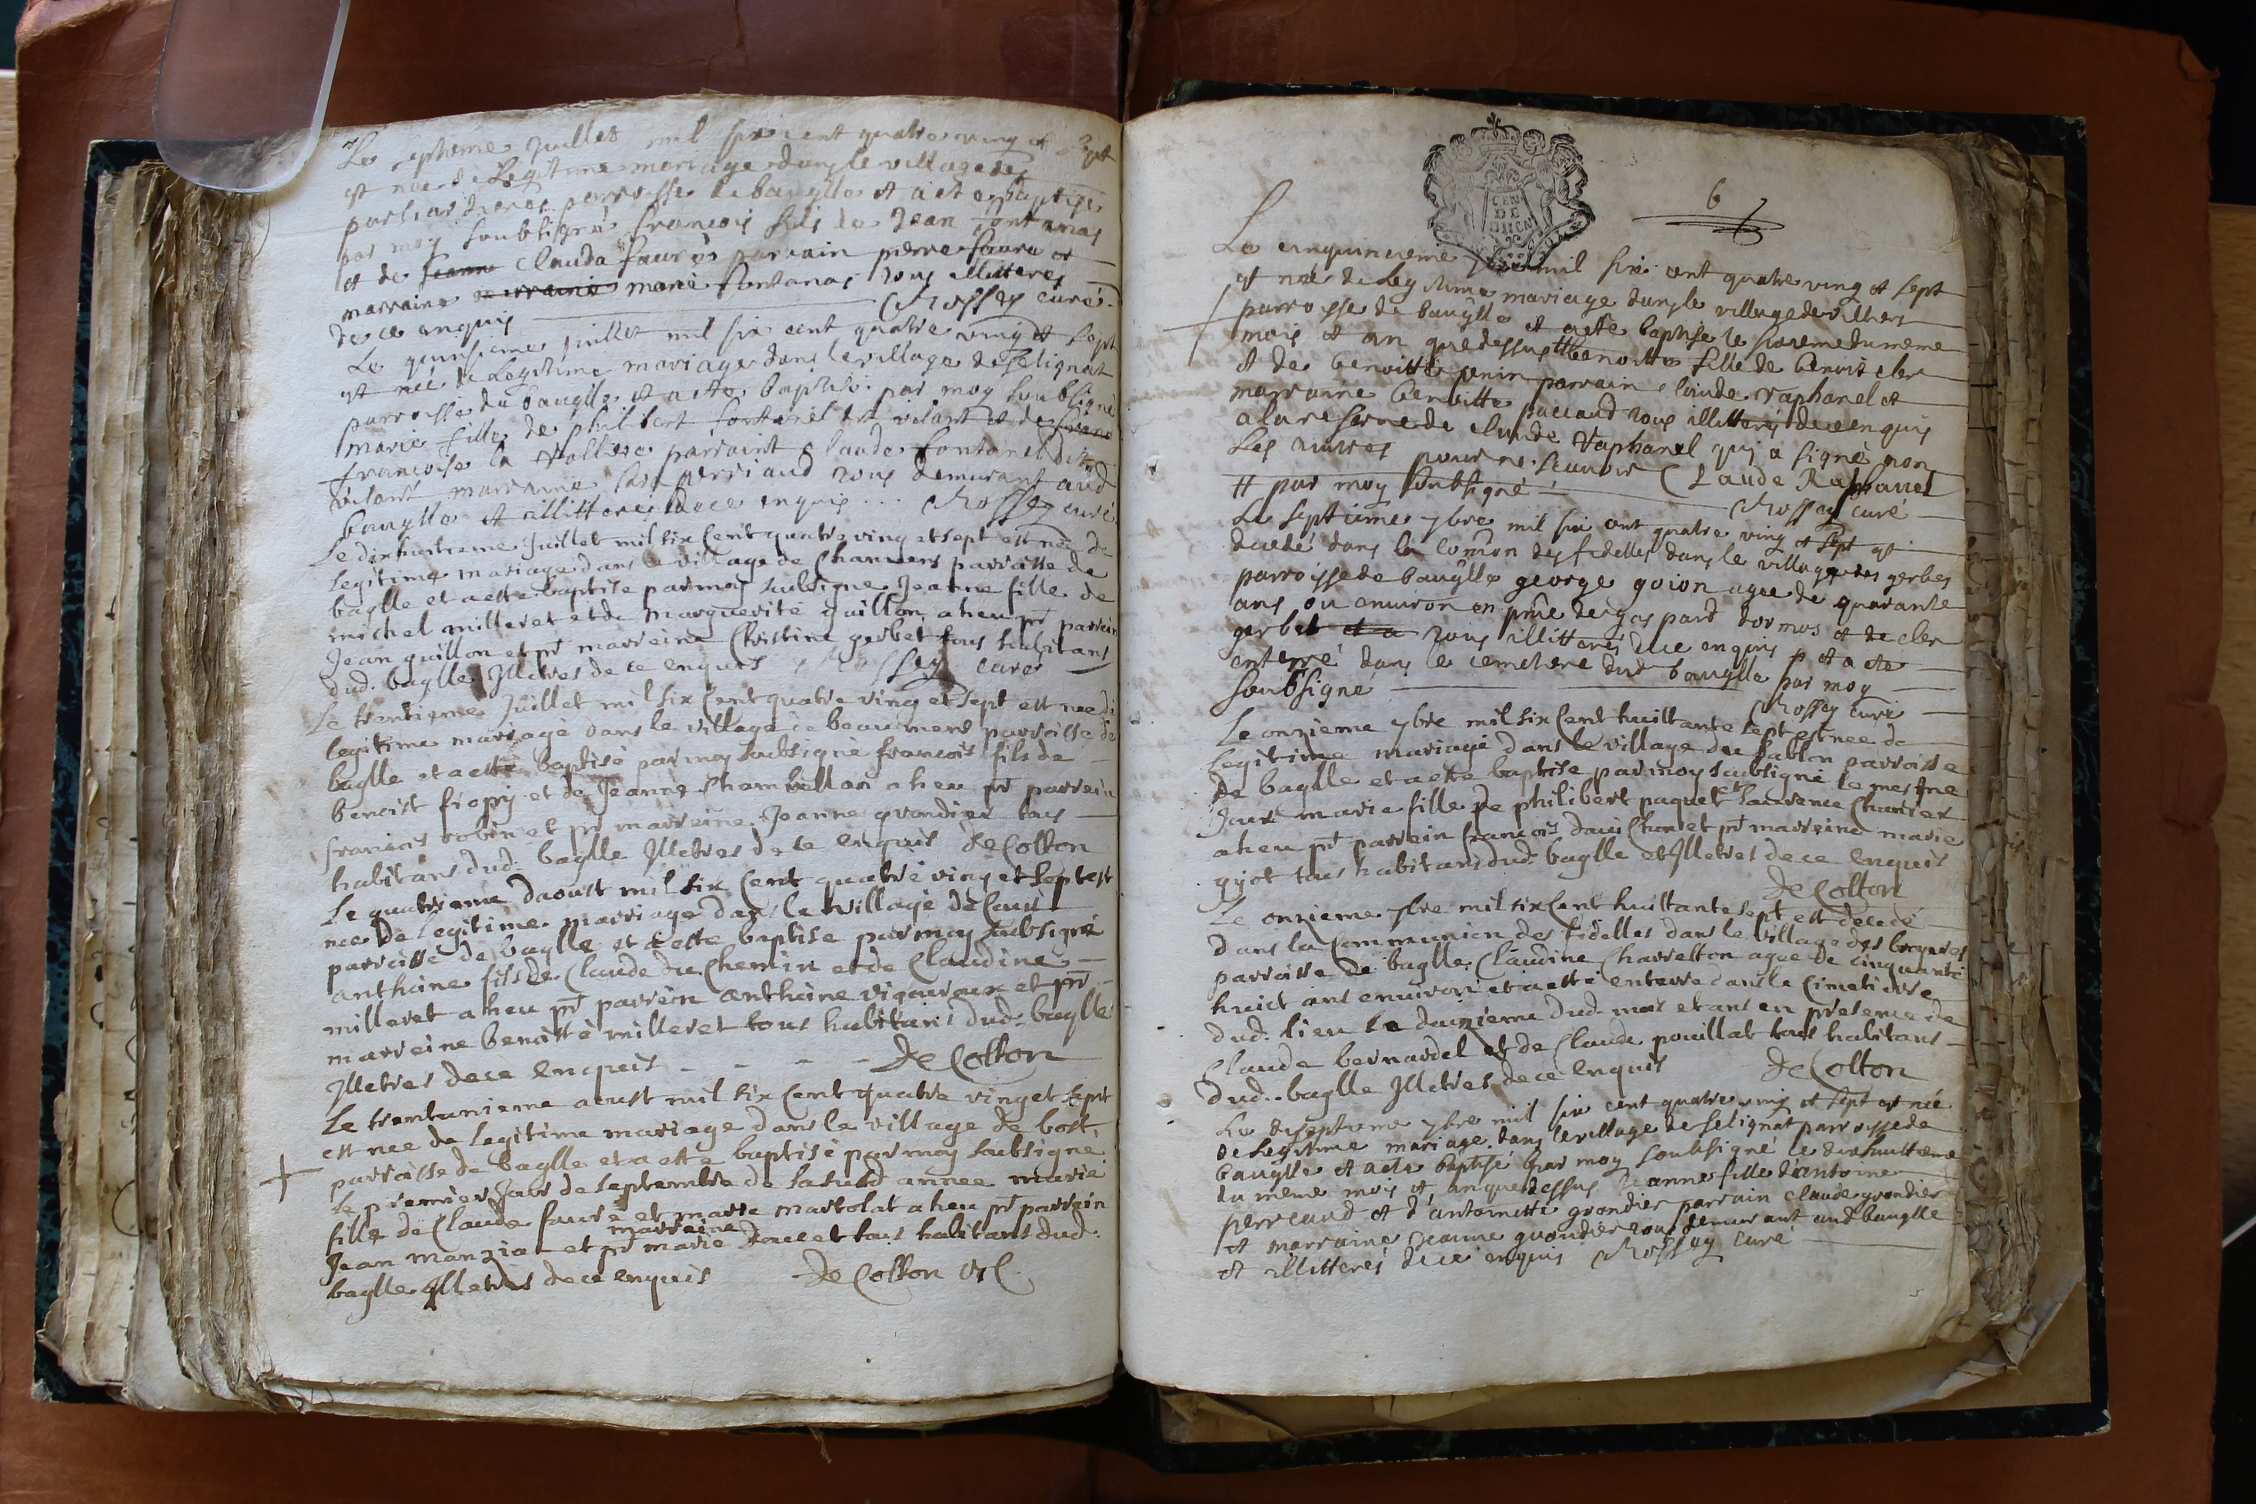 Le septieme Juillet mil six cent quatre ving et sept
est née de Legitime mariage dans le village des
parroisse de bauglle et a ete baptise
par moy soubsigné francois fils de Jean fontanas
et de Jeanne Clauda faure parrain pierre faure et
marraine marraine marie fontanas tous illitteres
de ce enquis Rossey curé
Le quinsieme Juillet mil six cent quatre ving et sept
est née de Legitime mariage dans le village de selignat
parroisse de bauglle et a ete baptisé par moy soubsigné
marie fille de philibert fontanel dit vilant et de
francoise la valliere parraint Claude fontanel dit
vilant marraine perriaud tous demurant aud
baugllе et illitteres de ce enquis Rossey curé
Le dixhuitieme Juillet mil six Cent quatre ving et sept est née de
legitime mariage dans le village de Chanvers parroisse de
baglle et a esté baptise par moy subsigne Jeanne fille de
michel milleret et de marguerite guillon a heu pr parrein
Jean guillon et pr marreine Christine gerbet tous habitans
dud. baglle Illetres de ce enquis Rossey curé
Le trentieme Juillet mil six Cent quatre ving et sept est nee de
legitime mariage dans le village de beaumend parroisse de
baglle et a esté baptisé par moy subsigne francois fils de
benoist fropy et de Jeanne Chambellan a heu pr parrein
francois robin et pr marreine Jeanne grandier tous
habitans dud. baglle Illetres de ce enquis De Colton
Le quatrieme daoust mil six Cent quatre ving et sept est
nee de legitime marriage dans le village de Caus
parroisse de baglle et a esté baptise par moy subsigné
anthoine fils de Claude du Chemin et de Claudine
milleret a heu pr parrein anthoine vigouroux et pr
marreine benoitte milleret tous habitans dud. baglle
Illetres de ce enquis De Colton
Le trentunieme aoust mil six Cent quatre ving et sept
est nee de legitime mariage dans le village de bost
parroisse de baglle et a esté baptisé par moy subsigne
le premier Jour de septembre de la susd année marie
fille de Claude faure et marie martolat a heu pr parrein
marreine
Jean manzia et pr marie doucet tous habitans dud.
baglle Illetres de ce enquis De Colton
6
GEN
DE
DIION
Le cinquiesme mil six cent quatre ving et sept
est née de Legitime mariage dans le village de villers
parroisse de baugllе et a eté baptise le sixieme du meme
mois et an que dessus # benoitte fille de benoit cler
et de benoitte penin parrain Claude raphanel et
marrainne benoitte paccaud tous illitterés de ce enquis
a la reserve de Claude Raphanel qui a signé non
Les autres pour ne scavoir Claude Raphanel
# par moy soubsigné Rossey curé
Le septieme 7bre mil six cent quatre ving et sept est
decedé dans la comion des fidelles dans le village des gerbes
parroisse de baugllе george goion agee de quarante
ans ou environ en pnce de gaspard dormos et de cler
gerbet et a tous illitterés de ce enquis et a ete
enterré dans le cemetiere dud baugllе par moy
soubsigné Rossey curé
Le onzieme 7bre mil six Cent huittante sept est nee de
legitime mariage dans le village du sablon parroisse
de baglle et a esté baptise par moy subsigné le mesme
Jour marie fille de philibert paquet et laurence Charrier
a heu pr parrein francois dauiChon et pr marreine marie
gyot tous habitans dud. baglle et Illetres de ce enquis
De Colton
Le onzieme 7bre mil six Cent huittante sept est decedé
dans la Communion des fidelles dans le village des bruyeres
parroisse de baglle Claudine Charreton agee de cinquante
huict ans environ et a esté enterre dans le Cimetiere
dud. lieu le douzieme dud. mois et ans en presence de
Claude bernardel et de Claude pouillat tous habitans
dud. baglle Illetres de ce enquis De Colton
Le diseptieme 7bre mil six cent quatre ving et sept est née
de Legitime mariage dans le village de selignat parroisse de
baugllе et a eté baptisé par moy soubsigné le dixhuittieme
du meme mois et an que dessus Jeanne fille d'antoine
perreaud et d'antoinette grondier parrain claude grondier
et marraine Jeanne grondier tous demurant aud baugllе
et illitterés de ce enquis Rossey curé